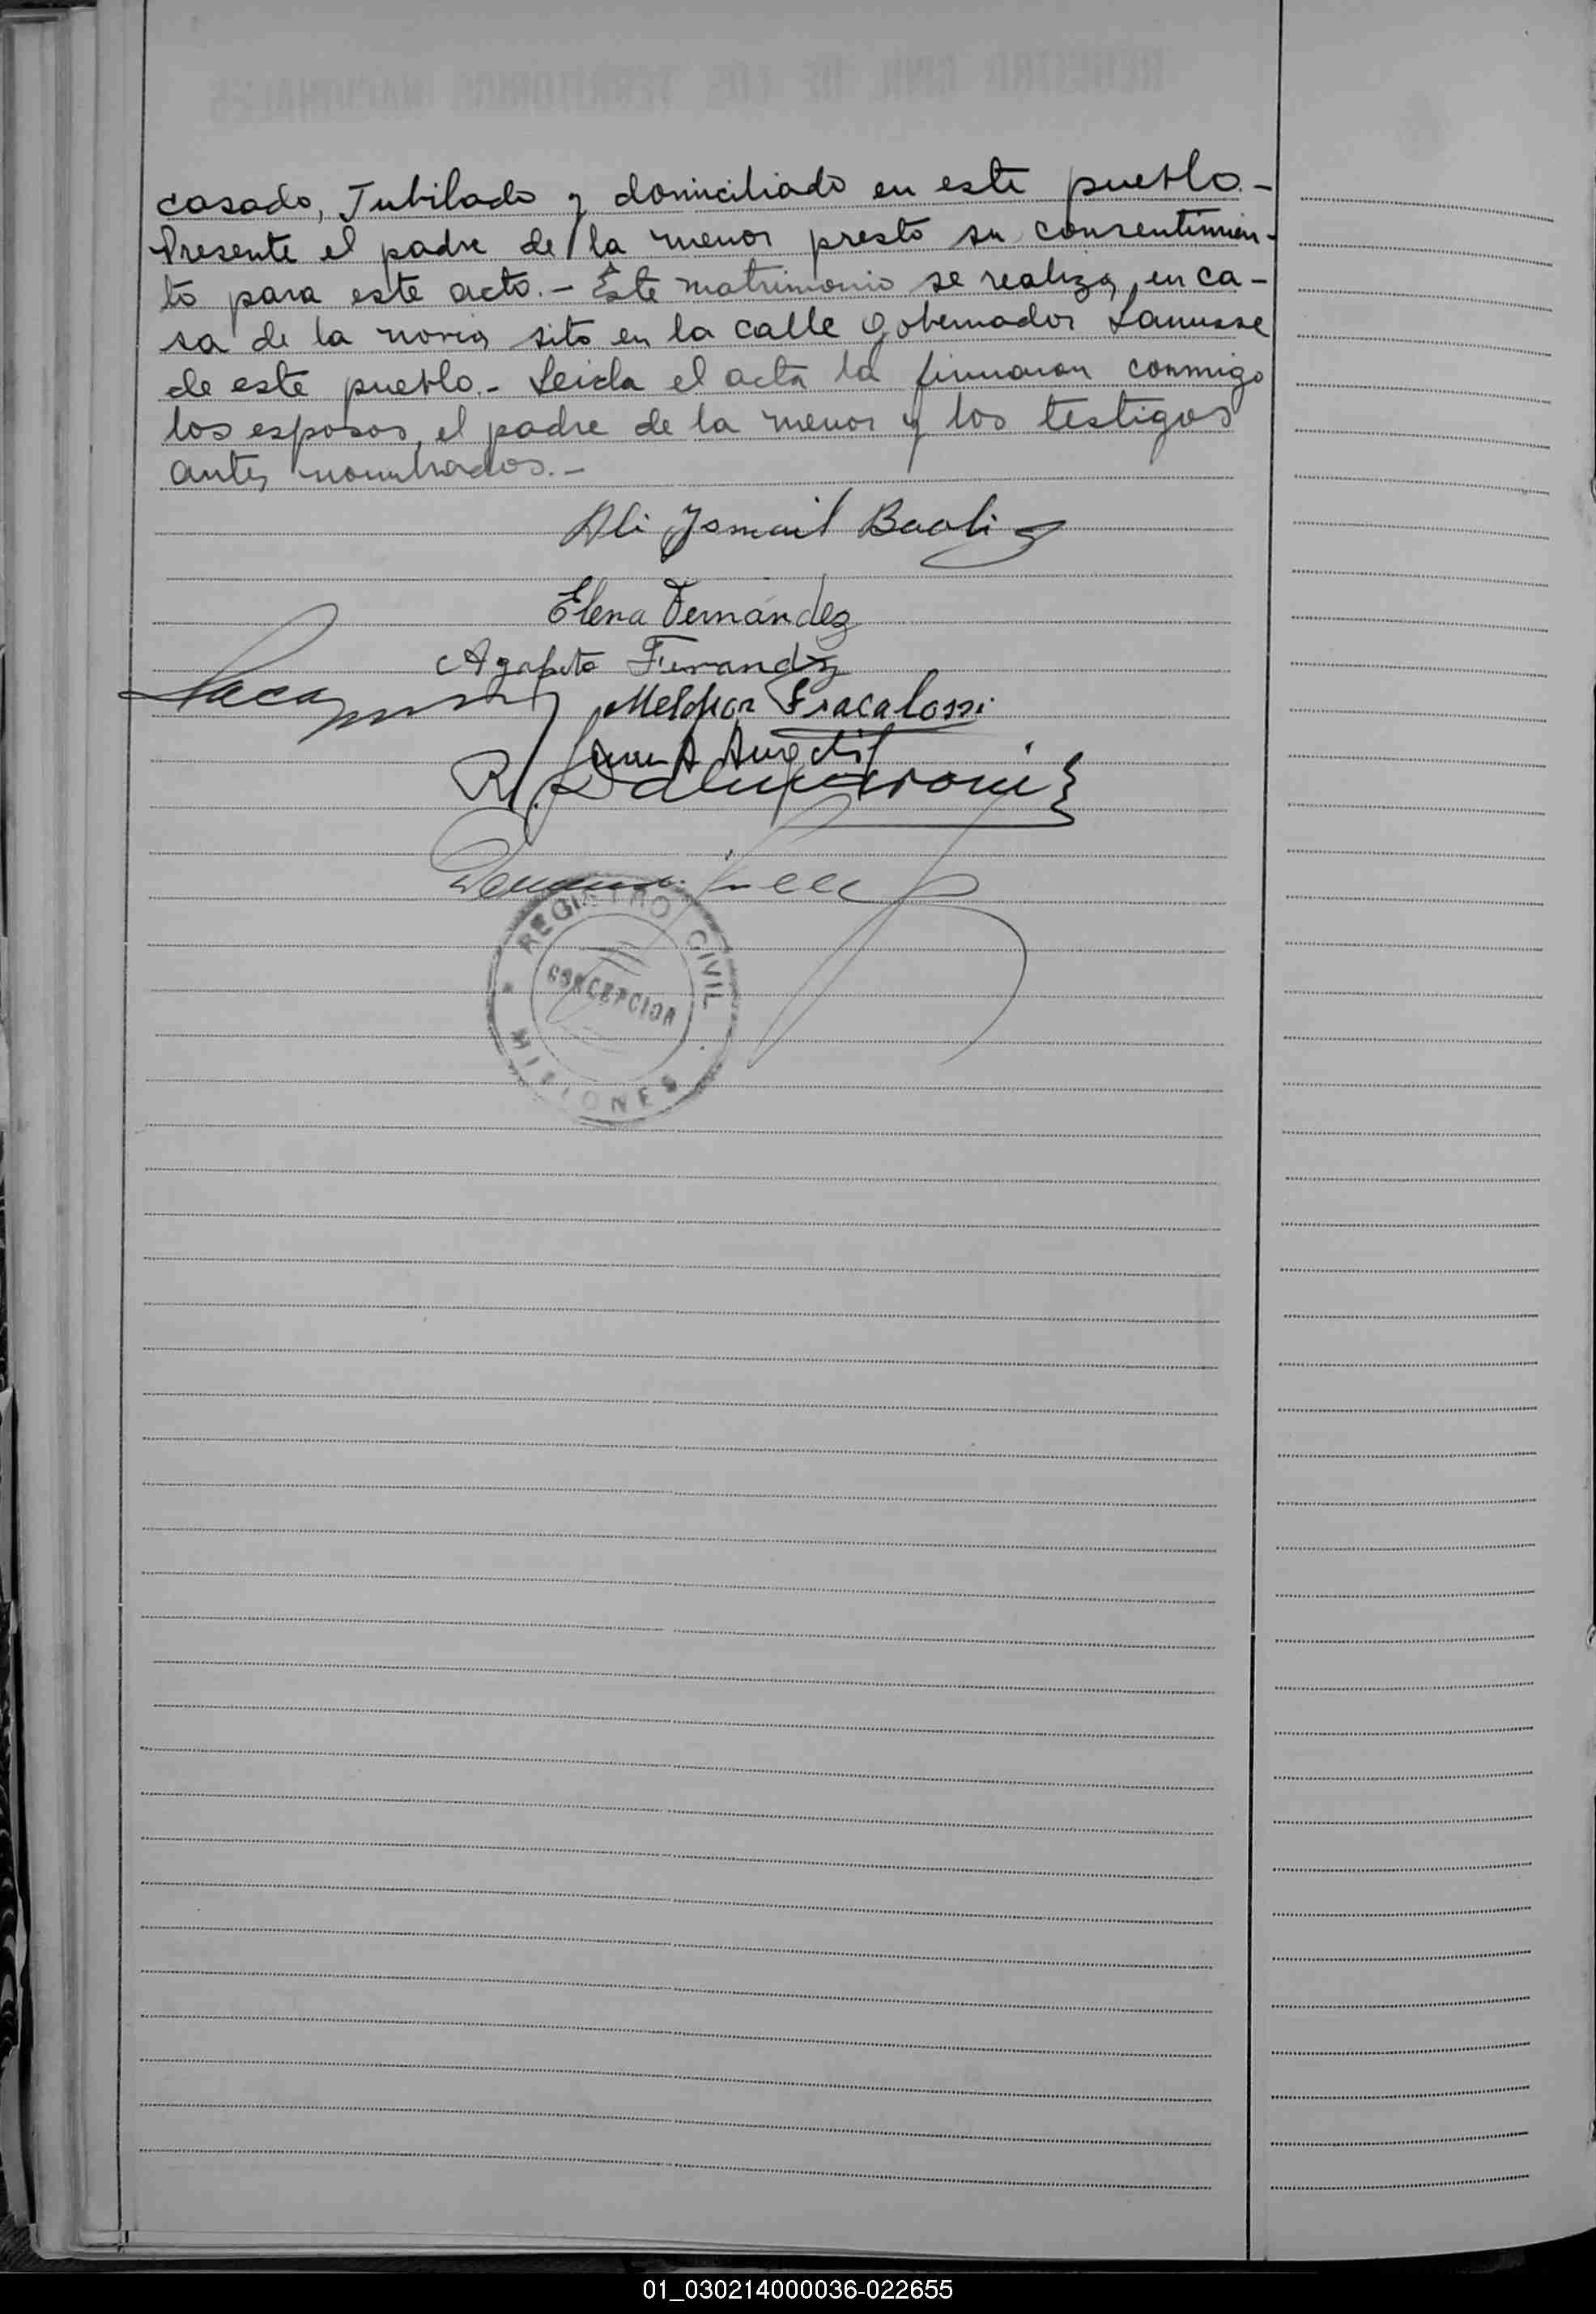 casado, Jubilado y domiciliado en este pueblo.-
Presente el padre de la menor prestó su consentimien-
to para este acto.- Este matrimonio se realiza, en ca-
sa de la novia sito en la calle Gobernador Lanusse
de este pueblo.- Leida el acta la firmaron conmigo
los esposos, el padre de la menor y los testigos
antes nombrados.-
Ali Ismail Baali
Elena Fernández
Agapito Fernandz
Melchor Fracalossi
REGISTRO CIVIL
CONCEPCION
MISIONES
01_030214000036-022655